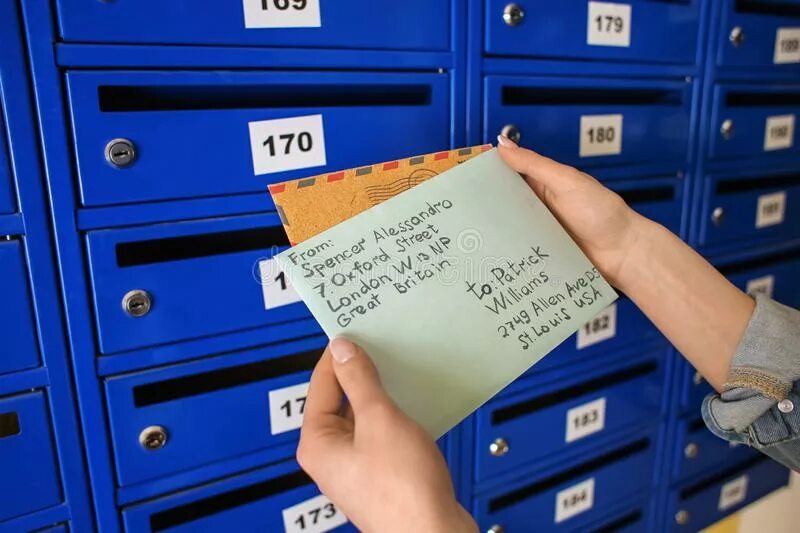 169
179
189
170
180
190
From:
Spencer Alessandro
7, Oxford Street
London W 13 NP
Great Britain
to: Patrick
Williams
2749 Allen Ave D5
St. Louis USA
182
183
173
184
dreamstime